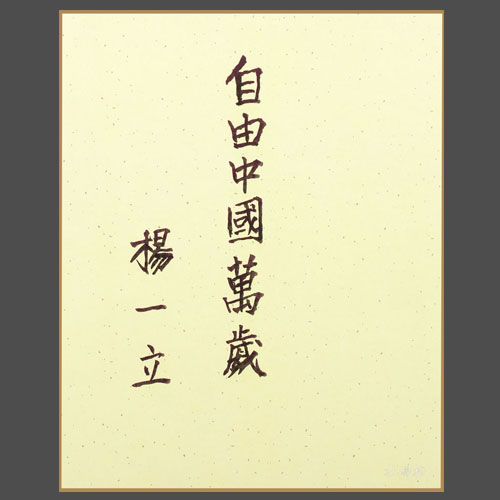 自由中國萬歲
楊一立